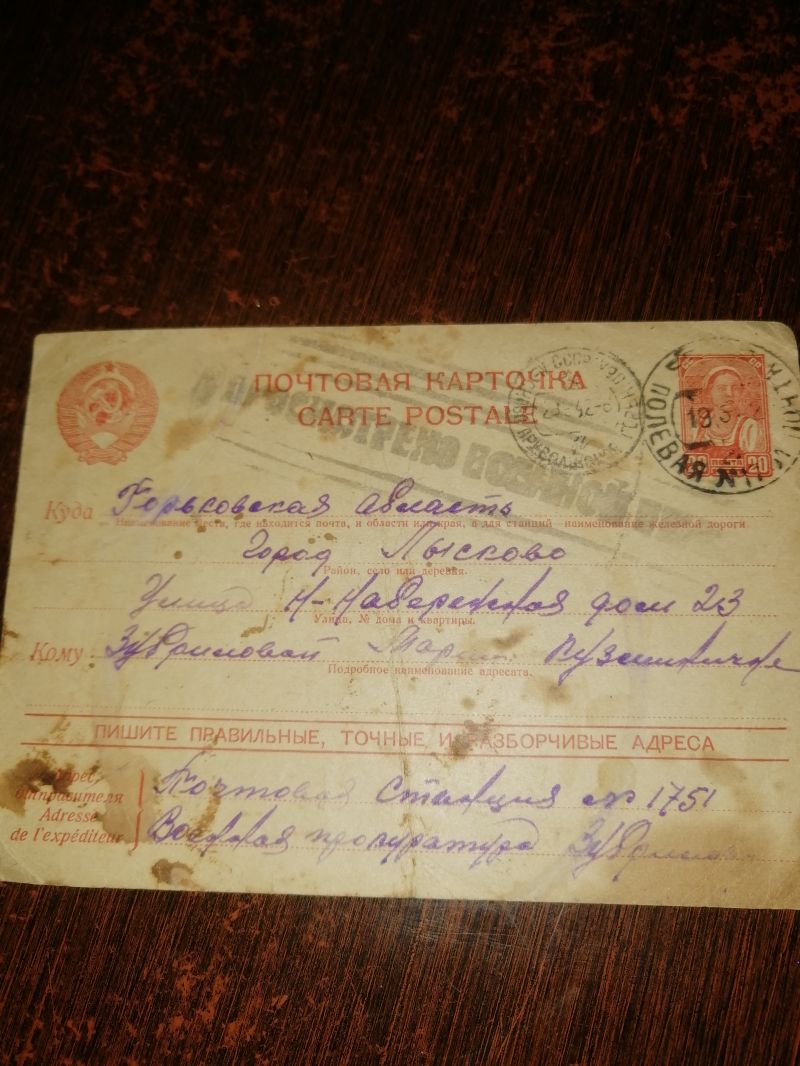 ПОЧТОВАЯ КАРТОЧКА
CARTE POSTALE
ПРОСМОТРЕНО ВОЕННОЙ
ПОЛЕВАЯ ПОЧТА
13
ПОЧТА
20 20
Куда Горьковская область
Наименование места, где находится почта, и области или края, а для станций наименование железной дороги
Город Лысково
Район, село или деревня.
Улица Н-Набережная дом 23
Улица, № дома и квартиры.
Кому Зубриловой Марии Кузминичне
Подробное наименование адресата.
ПИШИТЕ ПРАВИЛЬНЫЕ, ТОЧНЫЕ И РАЗБОРЧИВЫЕ АДРЕСА
Адрес отправителя
Adresse de l'expéditeur
Почтовая Станция № 1751
Военная прокуратура